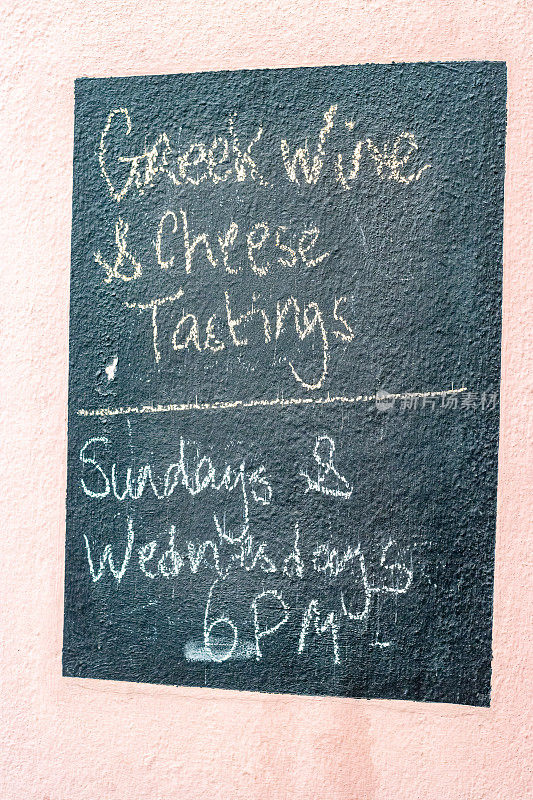 Greek Wine
& Cheese
Tastings
新片场
Sundays &
Wednesdays
6PM